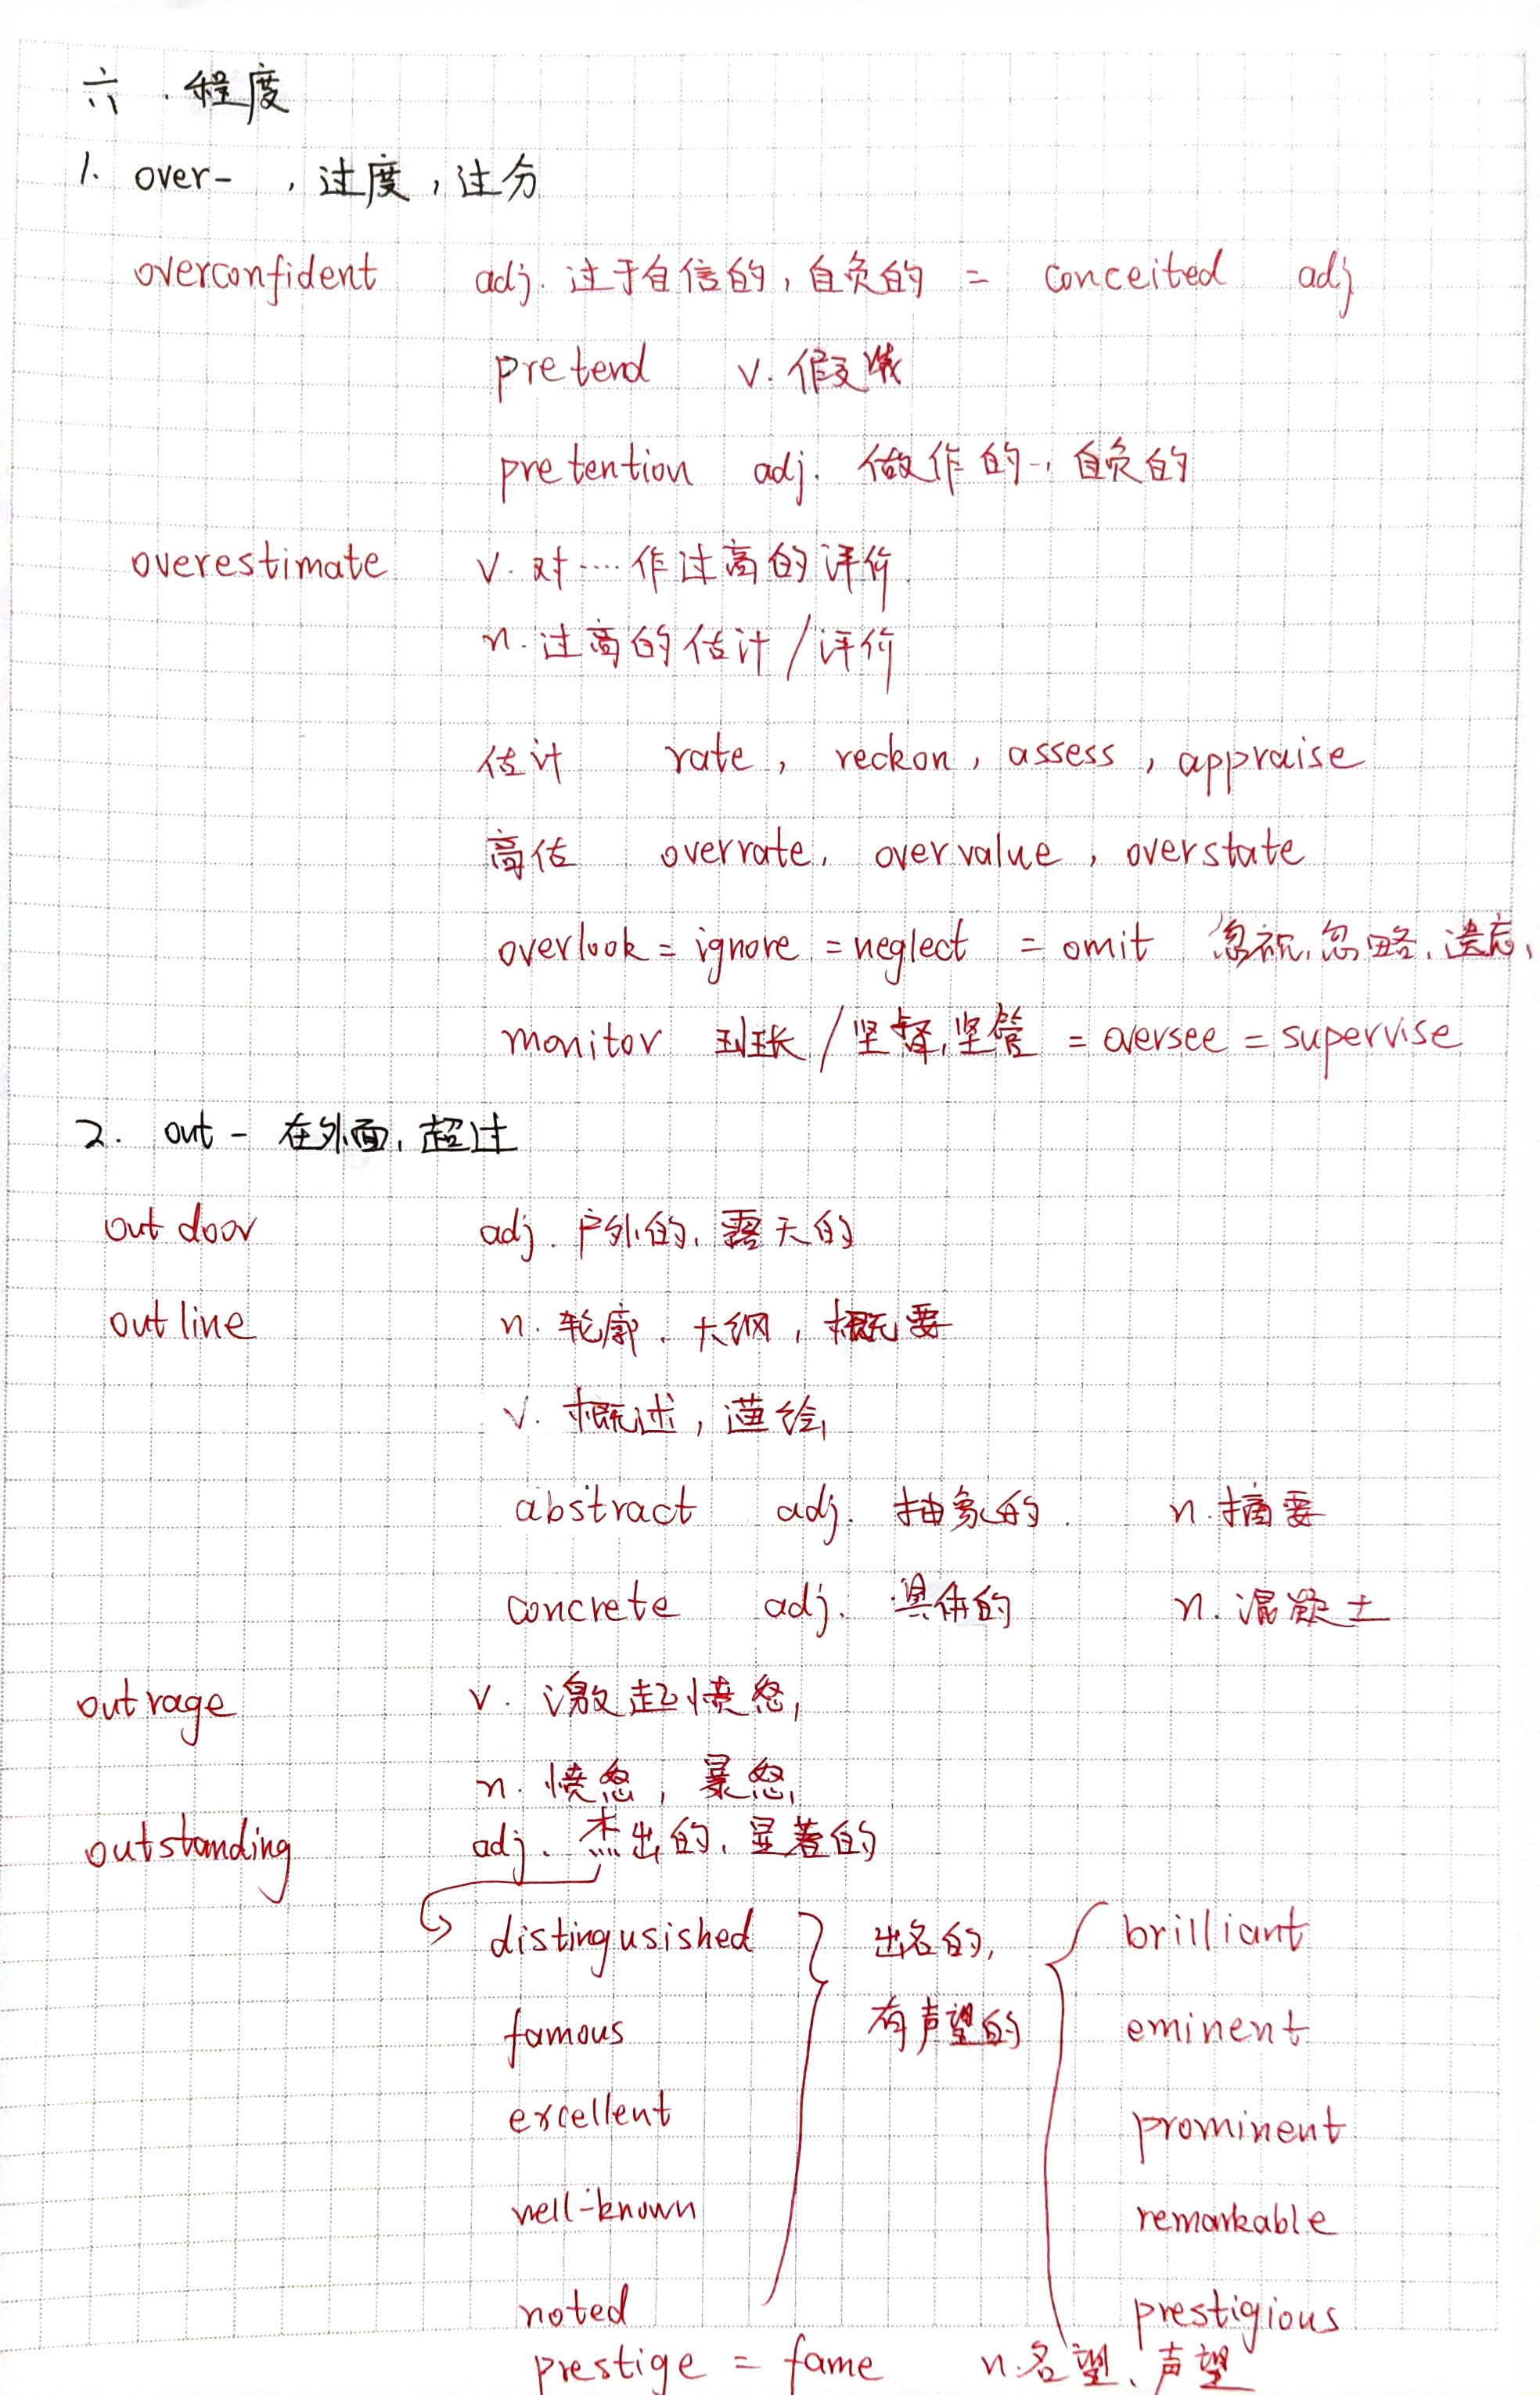 六.程度
1. over- ,过度,过分
overconfident adj. 过于自信的,自负的 = conceited adj
pretend v. 假装
pretention adj. 做作的,自负的
overestimate v. 对....作过高的评价
n. 过高的估计/评价
估计 rate, reckon, assess, appraise
高估 overrate, overvalue, overstate
overlook = ignore = neglect = omit 忽视,忽略,遗忘,
monitor 班长/监督,监管 = oversee = supervise
2. out- 在外面,超过
outdoor adj. 户外的,露天的
outline n. 轮廓、大纲,概要
v. 概述,描绘
abstract adj. 抽象的. n. 摘要
concrete adj. 具体的 n. 混凝土
outrage v. 激起愤怒,
n. 愤怒,暴怒
outstanding adj. 杰出的,显著的
distingusished 出名的, brilliant
famous 有声望的 eminent
excellent prominent
well-known remarkable
noted prestigious
prestige = fame n.名望、声望